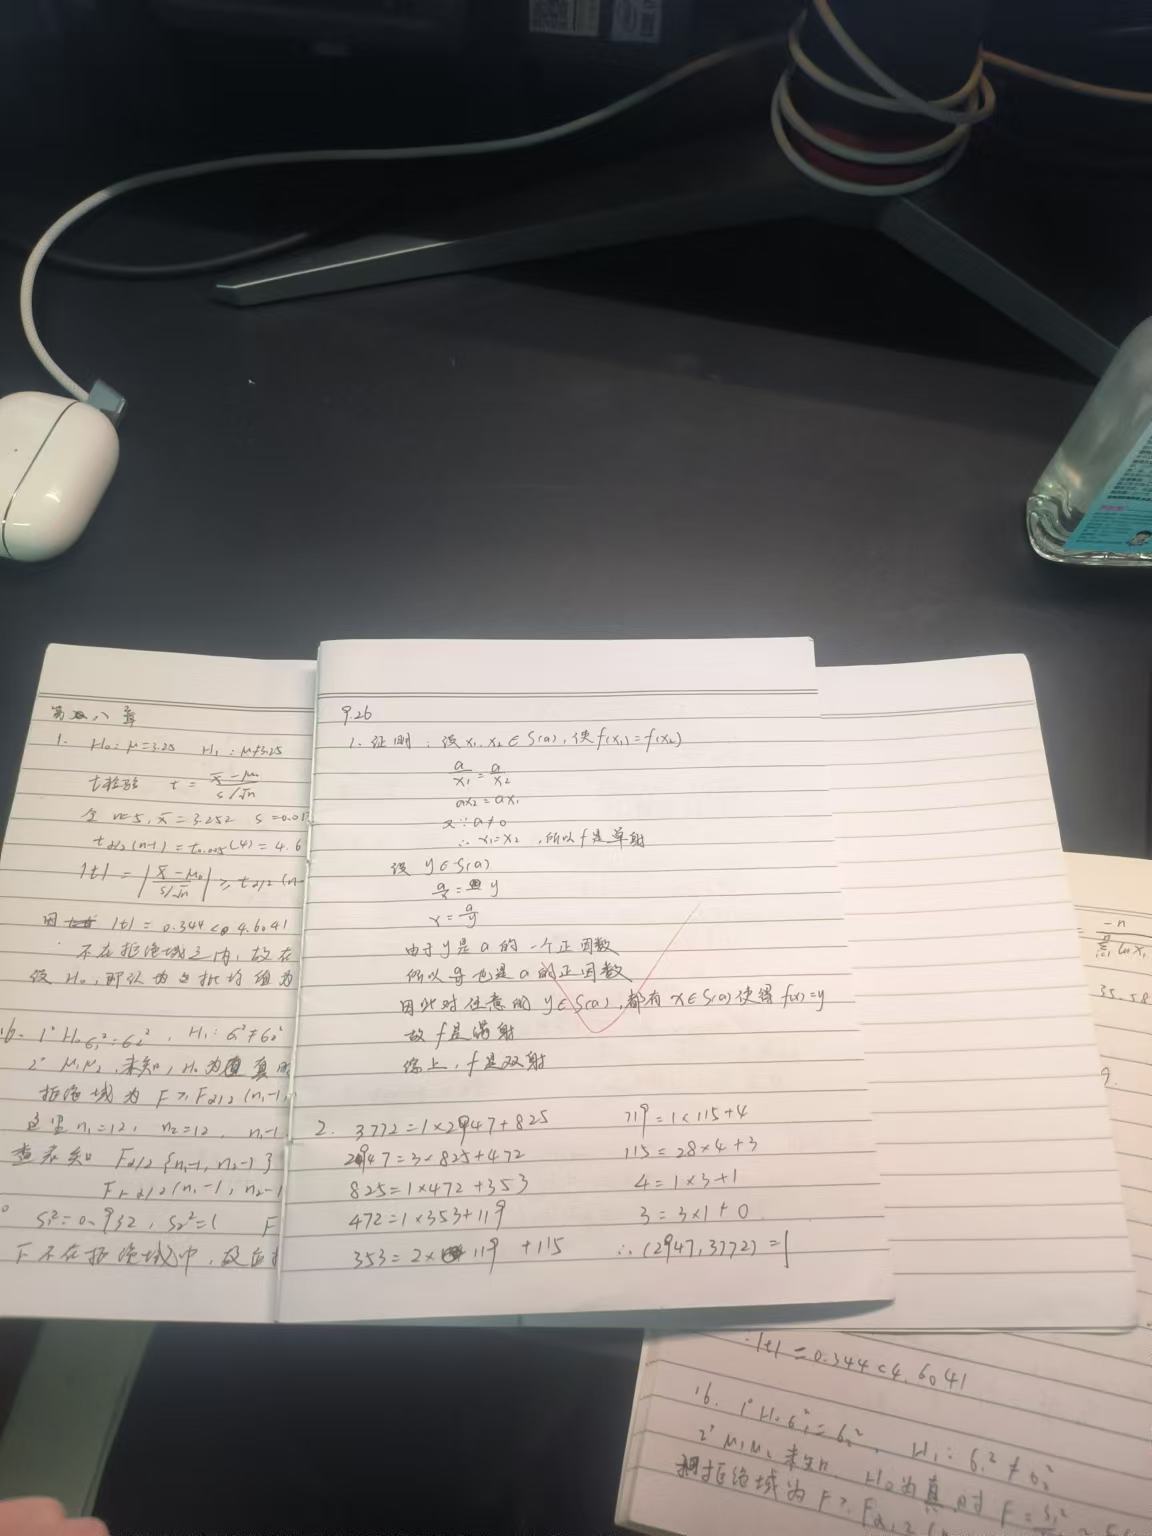 第八章
1. H₀: μ=3.25 H₁: μ≠3.25
t检验 t = (x̄-μ₀)/(s/√n)
n=5, x̄=3.252 s=0.01
tα/2(n-1)=t0.005(4)=4.6
|t| = |(x̄-μ₀)/(s/√n)| ≥ tα/2(n-
因 |t| = 0.344<4.6041
不在拒绝域之内,故在
设H₀,即认为这批均值为
16. 1° H₀ σ₁²=σ₂², H₁: σ₁²≠σ₂²
2° μ₁μ₂ 未知, H₀为真时
拒绝域为 F≥Fα/2(n₁-1,
这里 n₁=12, n₂=12, n₁-1
查表知 Fα/2{n₁-1, n₂-1}
F₁-α/2(n₁-1, n₂-1
S₁²=0.932, S₂²=1 F
F不在拒绝域中,故
9.26
1. 证明:设x₁, x₂∈S(a), 使f(x₁)=f(x₂)
a/x₁ = a/x₂
ax₂=ax₁
又∵a≠0
∴x₁=x₂,所以f是单射
设 y∈S(a)
a/x = y
x = a/y
由于y是a的一个正因数
所以 a/y 也是a的正因数
因此对任意的y∈S(a),都有x∈S(a)使得f(x)=y
故f是满射
综上,f是双射
2. 3772=1×2947+825
2947=3×825+472
825=1×472+353
472=1×353+119
353=2×119+115
119=1×115+4
115=28×4+3
4=1×3+1
3=3×1+0
∴(2947,3772)=1
= -n/(Σ ln xᵢ
35.58
9.
|t|=0.344<4.6041
16. 1° H₀ σ₁²=σ₂², H₁: σ₁²≠σ₂²
2° μ₁μ₂ 未知, H₀为真时 F=S₁²
拒绝域为 F≥Fα/2(n